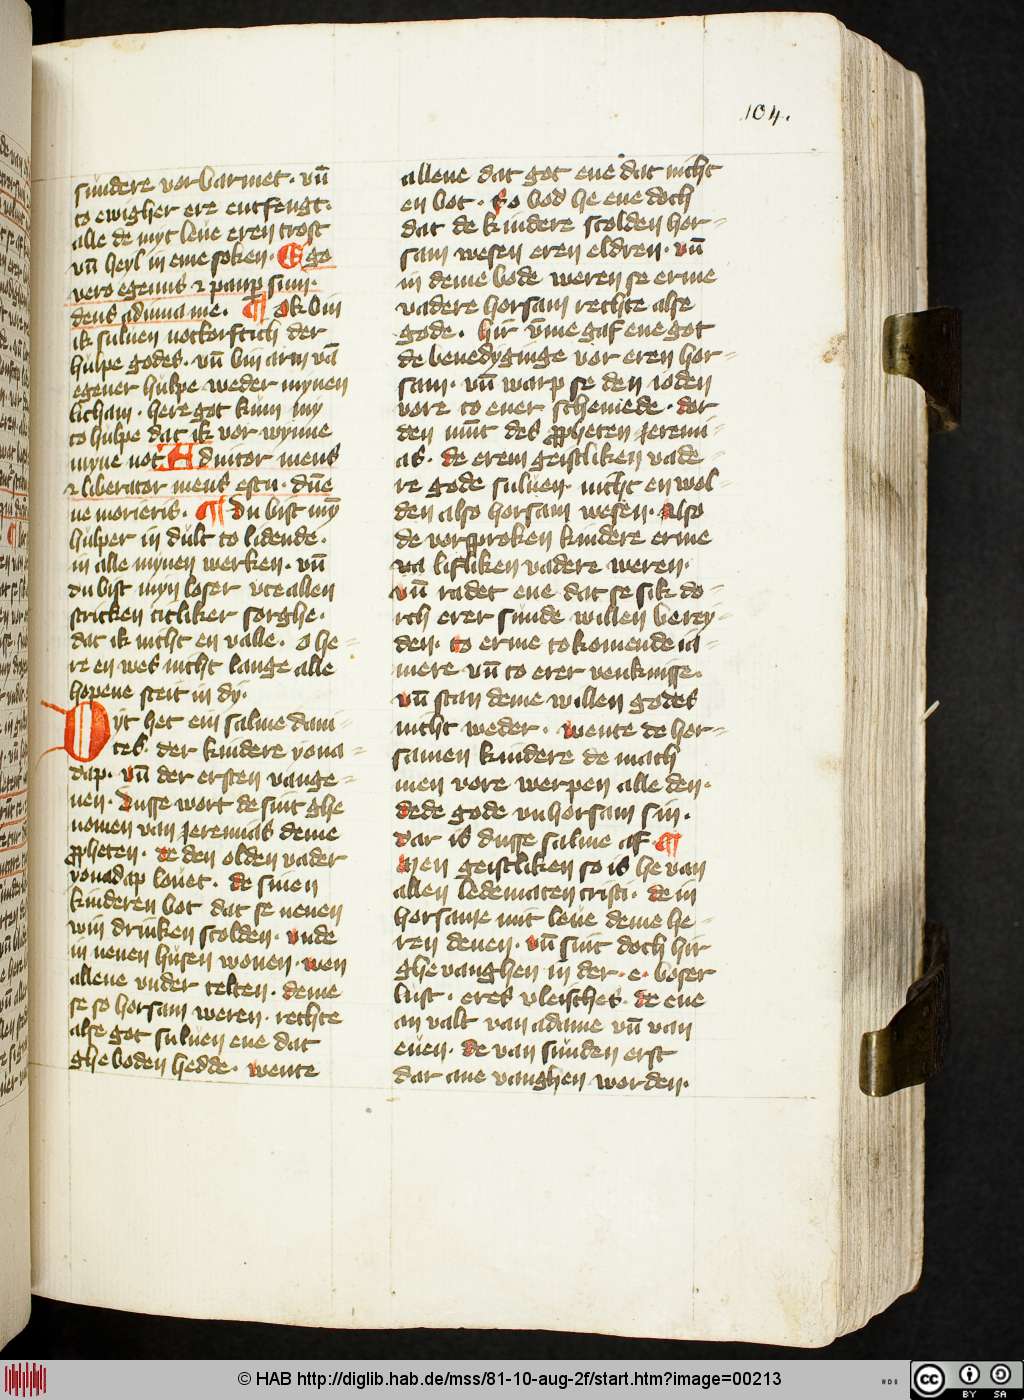 104.
sundere vorbarmet. vn̄
to ewigher ere entfengt.
alle de myt leue eren trost
vn̄ heyl in eme soken. Ego
vero egenus ⁊ paup̄ sum.
deus adiuua me. ¶ Ok bin
ik suluen notkorftich der
hulpe godes. vn̄ bin arm vā
egener hulpe weder mynen
licham. here got kum my
to hulpe dat ik vor wynne
myne not Adiutor meus
⁊ liberator meus es tu. dn̄e
ne morieris. ¶ Du bist mȳ
hulper in dult to lidende.
in alle mynen werken. vn̄
du bist myn loser vte allen
stricken titliker sorghe.
dat ik nicht en valle. O he-
re en wes nicht lange alle
hopene steit in dy.
Dyt het ein salme daui-
tes. der kindere yona-
dap. vn̄ der ersten vange-
nen. Dusse wort de sint ghe
nomen van Jeremias deme
ꝓpheten. de den olden vader
yonadap louet. de sinen
kinderen bot dat se nenen
win drinken scolden. vnde
in nenen husen wonen. wen
allene vnder telten. deme
se so horsam weren. rechte
alse got suluen ene dat
ghe boden hedde. wente
allene dat got ene dat nicht
en bot. So bod he ene doch
dat de kindere scolden hor-
sam wesen eren eldren. vn̄
in deme bode weren se erme
vadere horsam rechte alse
gode. hir v̄me gaf ene got
de benedyginge vor eren hor-
sam. vn̄ warp se den ioden
vore to ener scheniede. dor
den mu̅t des ꝓpheten Jeremi-
as. de erem geistliken vade-
re gode suluen. nicht en wol-
den also horsam wesen. also
de vorsproken kindere erme
vā lifliken vadere weren.
vn̄ radet ene dat se sik do-
rch erer sunde willen berey-
den. to erme tokomende ia-
mere vn̄ to erer venknisse.
vn̄ stan deme willen godes
nicht weder. wente de hor-
samen kindere de mach
men vore werpen alle den.
de de gode vnhorsam sin.
dar is dusse salme af ¶
Men geistliken so is he van
allen ledematen cristi. de in
horsame mit leue deme he-
ren denen. vn̄ sint doch hir
ghe vanghen in der. e. boser
lust. eres vleisches. de ene
an valt van adame vn̄ van
euen. de van sunden erst
dar ane vanghen worden.
© HAB http://diglib.hab.de/mss/81-10-aug-2f/start.htm?image=00213
HAB
cc BY SA